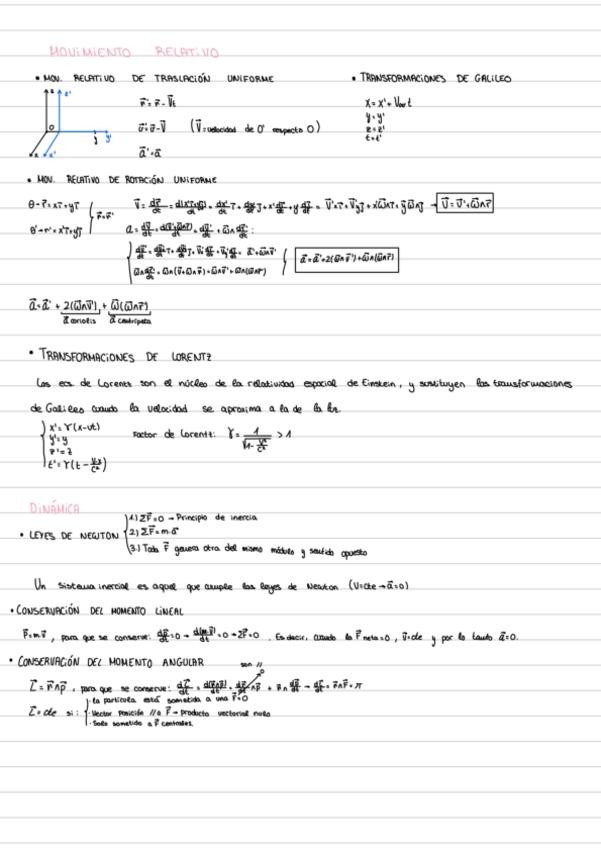 MOVIMIENTO RELATIVO
• MOV. RELATIVO DE TRASLACIÓN UNIFORME
• TRANSFORMACIONES DE GALILEO
r⃗' = r⃗ - V⃗t
v⃗' = v⃗ - V⃗ (V⃗ = velocidad de O' respecto O)
a⃗' = a⃗
y = y'
z = z'
t = t'
• MOV. RELATIVO DE ROTACIÓN UNIFORME
a⃗ = a⃗' + 2(ω⃗∧v⃗') + ω⃗∧(ω⃗∧r⃗')
a⃗ = a⃗' + 2(ω⃗∧v⃗') + ω⃗(ω⃗∧r⃗)
a⃗ coriolis a⃗ centrípeta
• TRANSFORMACIONES DE LORENTZ
Las ecs de Lorentz son el núcleo de la relatividad espacial de Einstein, y sustituyen las transformaciones
de Galileo cuando la velocidad se aproxima a la de la luz.
x' = γ(x-vt)
y' = y
z' = z
t' = γ(t - v·x/c²)
Factor de Lorentz: γ = 1/√(1 - v²/c²) > 1
DINÁMICA
• LEYES DE NEWTON
1.) ΣF⃗ = 0 → Principio de inercia
2.) ΣF⃗ = m·a⃗
3.) Toda F⃗ genera otra del mismo módulo y sentido opuesto
Un sistema inercial es aquel que cumple las leyes de Newton (V=cte → a⃗=0)
• CONSERVACIÓN DEL MOMENTO LINEAL
P⃗=m·v⃗, para que se conserve: dp⃗/dt = 0 → d(m·v⃗)/dt = 0 → ΣF⃗=0. Es decir, cuando la F⃗ neta=0, v⃗=cte y por lo tanto a⃗=0.
• CONSERVACIÓN DEL MOMENTO ANGULAR
son //
L⃗ = r⃗∧p⃗, para que se conserve:
L⃗ = cte si:
· la partícula está sometida a una F⃗=0
· Vector posición // a F⃗ → producto vectorial nulo
· Solo sometido a F⃗ centrales.